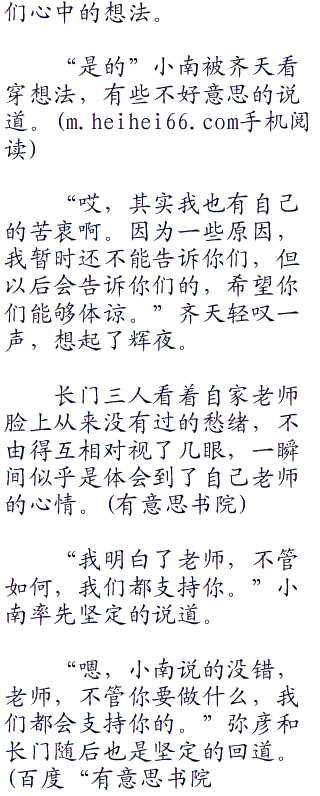 们心中的想法。
“是的”小南被齐天看
穿想法，有些不好意思的说
道。(m.heihei66.com手机阅
读)
“哎，其实我也有自己
的苦衷啊。因为一些原因，
我暂时还不能告诉你们，但
以后会告诉你们的，希望你
们能够体谅。”齐天轻叹一
声，想起了辉夜。
长门三人看着自家老师
脸上从来没有过的愁绪，不
由得互相对视了几眼，一瞬
间似乎是体会到了自己老师
的心情。(有意思书院)
“我明白了老师，不管
如何，我们都支持你。”小
南率先坚定的说道。
“嗯，小南说的没错，
老师，不管你要做什么，我
们都会支持你的。”弥彦和
长门随后也是坚定的回道。
(百度“有意思书院